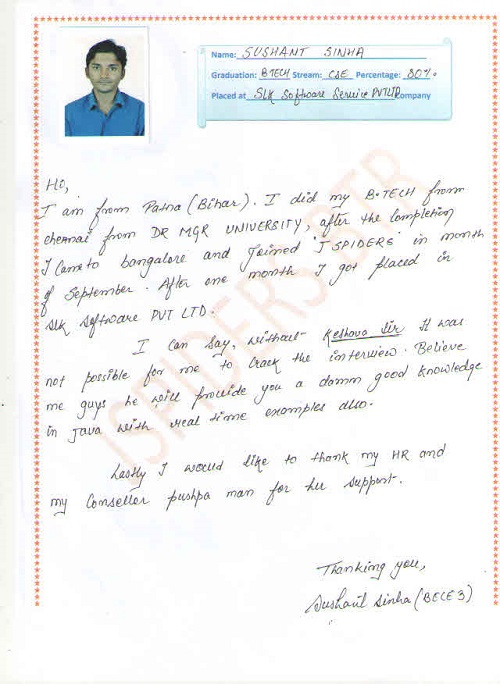 Name: SUSHANT SINHA
Graduation: BTECH Stream: CSE Percentage: 80%.
Placed at SLK Software Service PVT LTD Company
JSPIDERS BTR
Hi,
I am from Patna (Bihar). I did my B.TECH from
chennai from DR MGR UNIVERSITY, after the completion
I came to bangalore and joined 'J SPIDERS' in month
of September. After one month I got placed in
SLK Software PVT LTD.
I can say, without Keshava Sir it was
not possible for me to crack the interview. Believe
me guys he will provide you a damm good knowledge
in Java with real time examples also.
Lastly I would like to thank my HR and
my Conseller pushpa mam for her support.
Thanking you,
Sushant Sinha (BECE3)